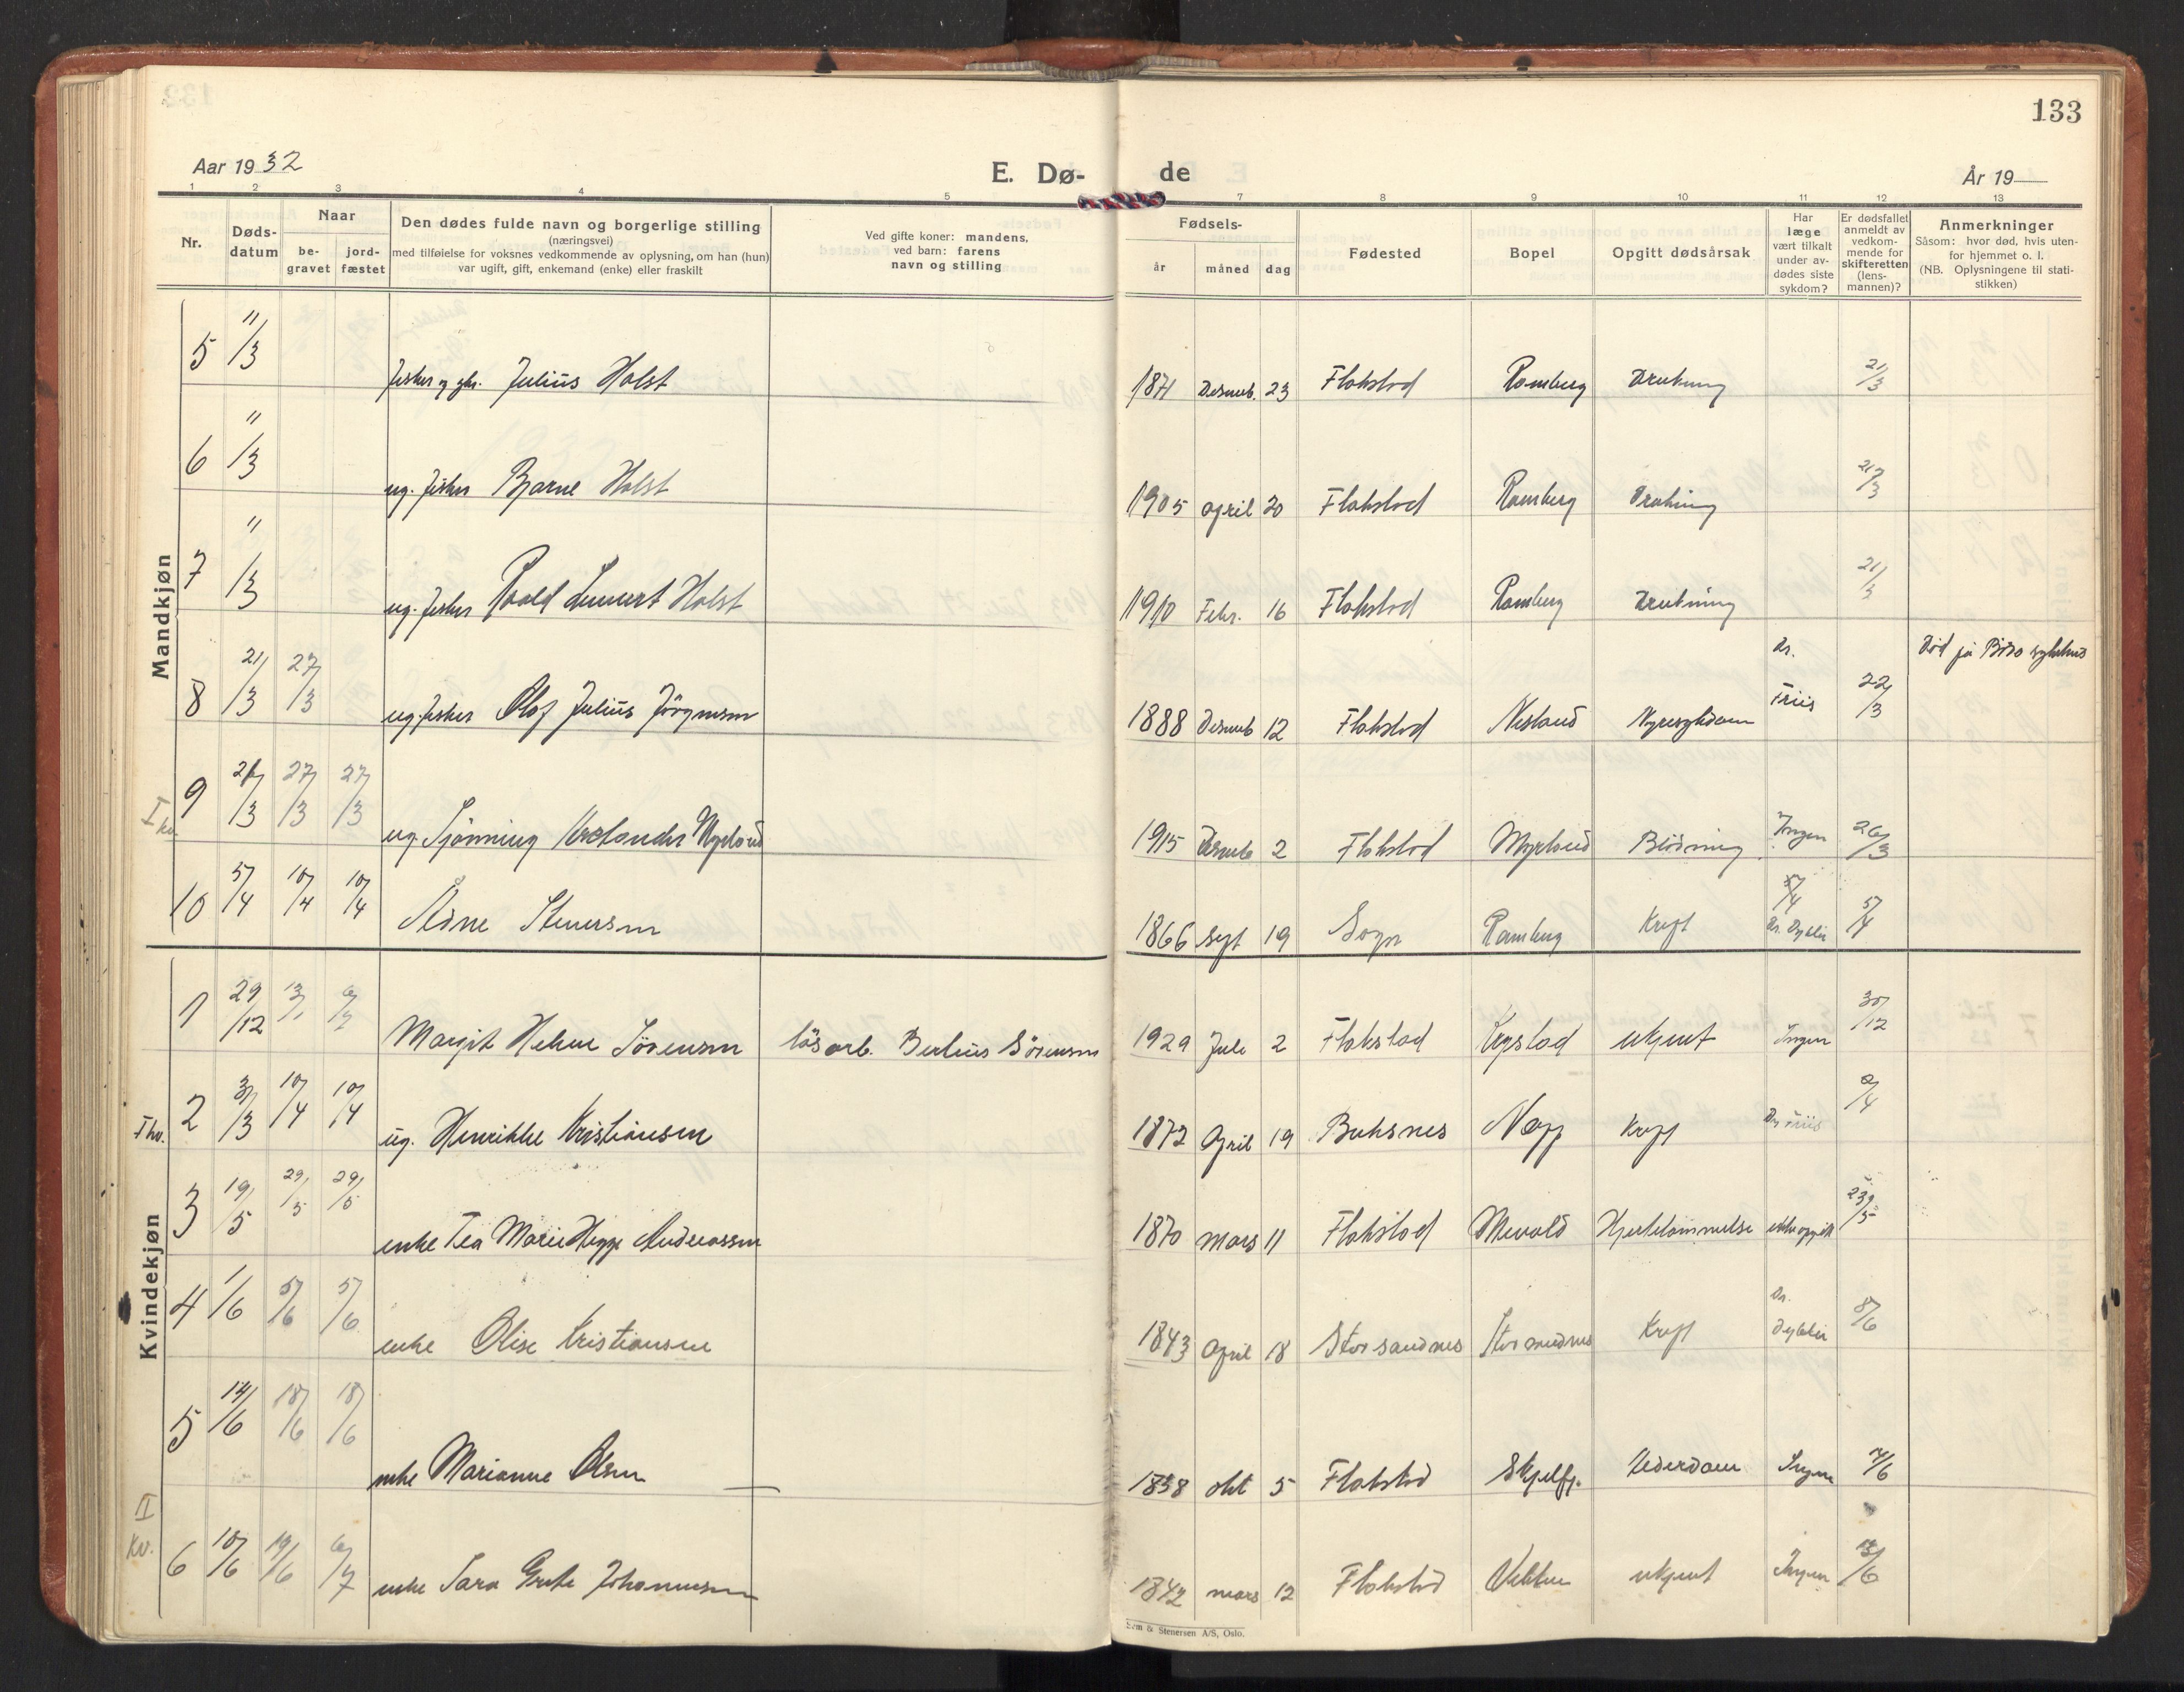 133
Aar 1932
E. Dø-
de
År 19
1 2 3 4 5 7 8 9 10 11 12 13
Nr.
Døds-
datum
Naar
be-
gravet
jord-
fæstet
Den dødes fulde navn og borgerlige stilling
(næringsvei)
med tilføielse for voksnes vedkommende av oplysning, om han (hun)
var ugift, gift, enkemand (enke) eller fraskilt
Ved gifte koner: mandens,
ved barn: farens
navn og stilling
Fødsels-
år måned dag
Fødested
Bopel
Opgitt dødsårsak
Har
læge
vært tilkalt
under av-
dødes siste
sykdom?
Er dødsfallet
anmeldt av
vedkom-
mende for
skifteretten
(lens-
mannen)?
Anmerkninger
Såsom: hvor død, hvis uten-
for hjemmet o. l.
(NB. Oplysningene til stati-
stikken)
Mandkjøn
5 11/3 fisker og gbr. Julius Holst 1871 Desemb. 23 Flakstad Ramberg Drukning 21/3
6 11/3 ug. fisker Bjarne Holst 1905 April 20 Flakstad Ramberg Drukning 21/3
7 11/3 ug. fisker Roald Lennert Holst 1910 Febr. 16 Flakstad Ramberg Drukning 21/3
8 21/3 27/3 ug fisker Olaf Julius Jörgensen 1888 Desemb 12 Flakstad Nesland Nyresykdom Dr. Friis 22/3 Död på Bodö sykehus
I kv.
9 27/3 27/3 ug. Myrland 1915 Desemb 2 Flakstad Myrland Blödning Ingen 26/3
10 5/4 10/4 10/4 Adne Stenersen 1866 Sept 19 Sogn Ramberg Kreft Dr. 5/4
Kvindekjøn
1 29/12 13/1 Margit Helene Sörensen lösarb. Berlius Sörensen 1929 Juli 2 Flakstad Krystad ukjent Ingen 30/12
I kv.
2 31/3 10/4 10/4 ug. Henrikke Kristiansen 1872 April 19 Buksnes Napp Kreft Dr Friis 2/4
3 19/5 29/5 29/5 enke Tea Marie Hegge Andreassen 1870 Mars 11 Flakstad Mevold Hjertelammelse ikke opgitt 23/5
4 1/6 5/6 5/6 enke Olise Kristiansen 1843 April 18 Storsandnes Storsandnes Kreft Dr. 8/6
5 14/6 18/6 18/6 enke Marianne Olsen 1838 okt 5 Flakstad Skjelfj. Alderdom Ingen 14/6
II
Kv.
6 10/6 19/6 6/7 enke Sara Grete Johannesen 1842 mars 12 Flakstad Vikten ukjent Ingen
Sem & Stenersen A/S, Oslo.